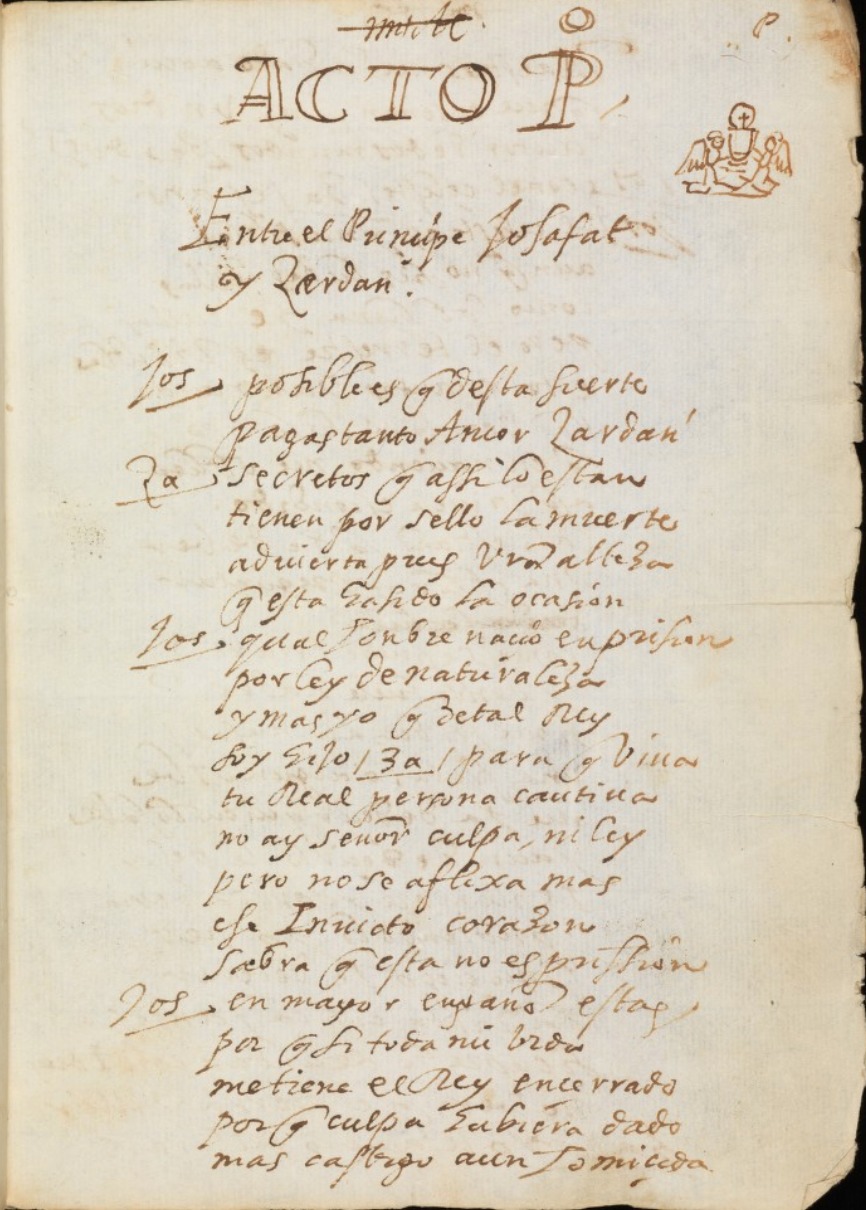 P.
ACTO P°.
Entre el Principe Josafat
y Zardan.
Jos posible es q̃ desta suerte
pagas tanto Amor Zardan
Za secretos q̃ assi lo estan
tienen por sello la muerte
advierta pues vrã alteza
q̃ esta ha sido la ocasión
Jos qual hombre nacio en prision
por ley de naturaleza
y mas yo q̃ de tal Rey
soy hijo / Za / para q̃ viva
tu Real persona cautiva
no ay señor culpa, ni ley
pero no se aflixa mas
ese Invicto corazon
sabra q̃ esta no es prission
Jos en mayor engaño estas
por q̃ si toda mi vida
me tiene el Rey encerrado
por q̃ culpa hubiera dado
mas castigo a un homicida